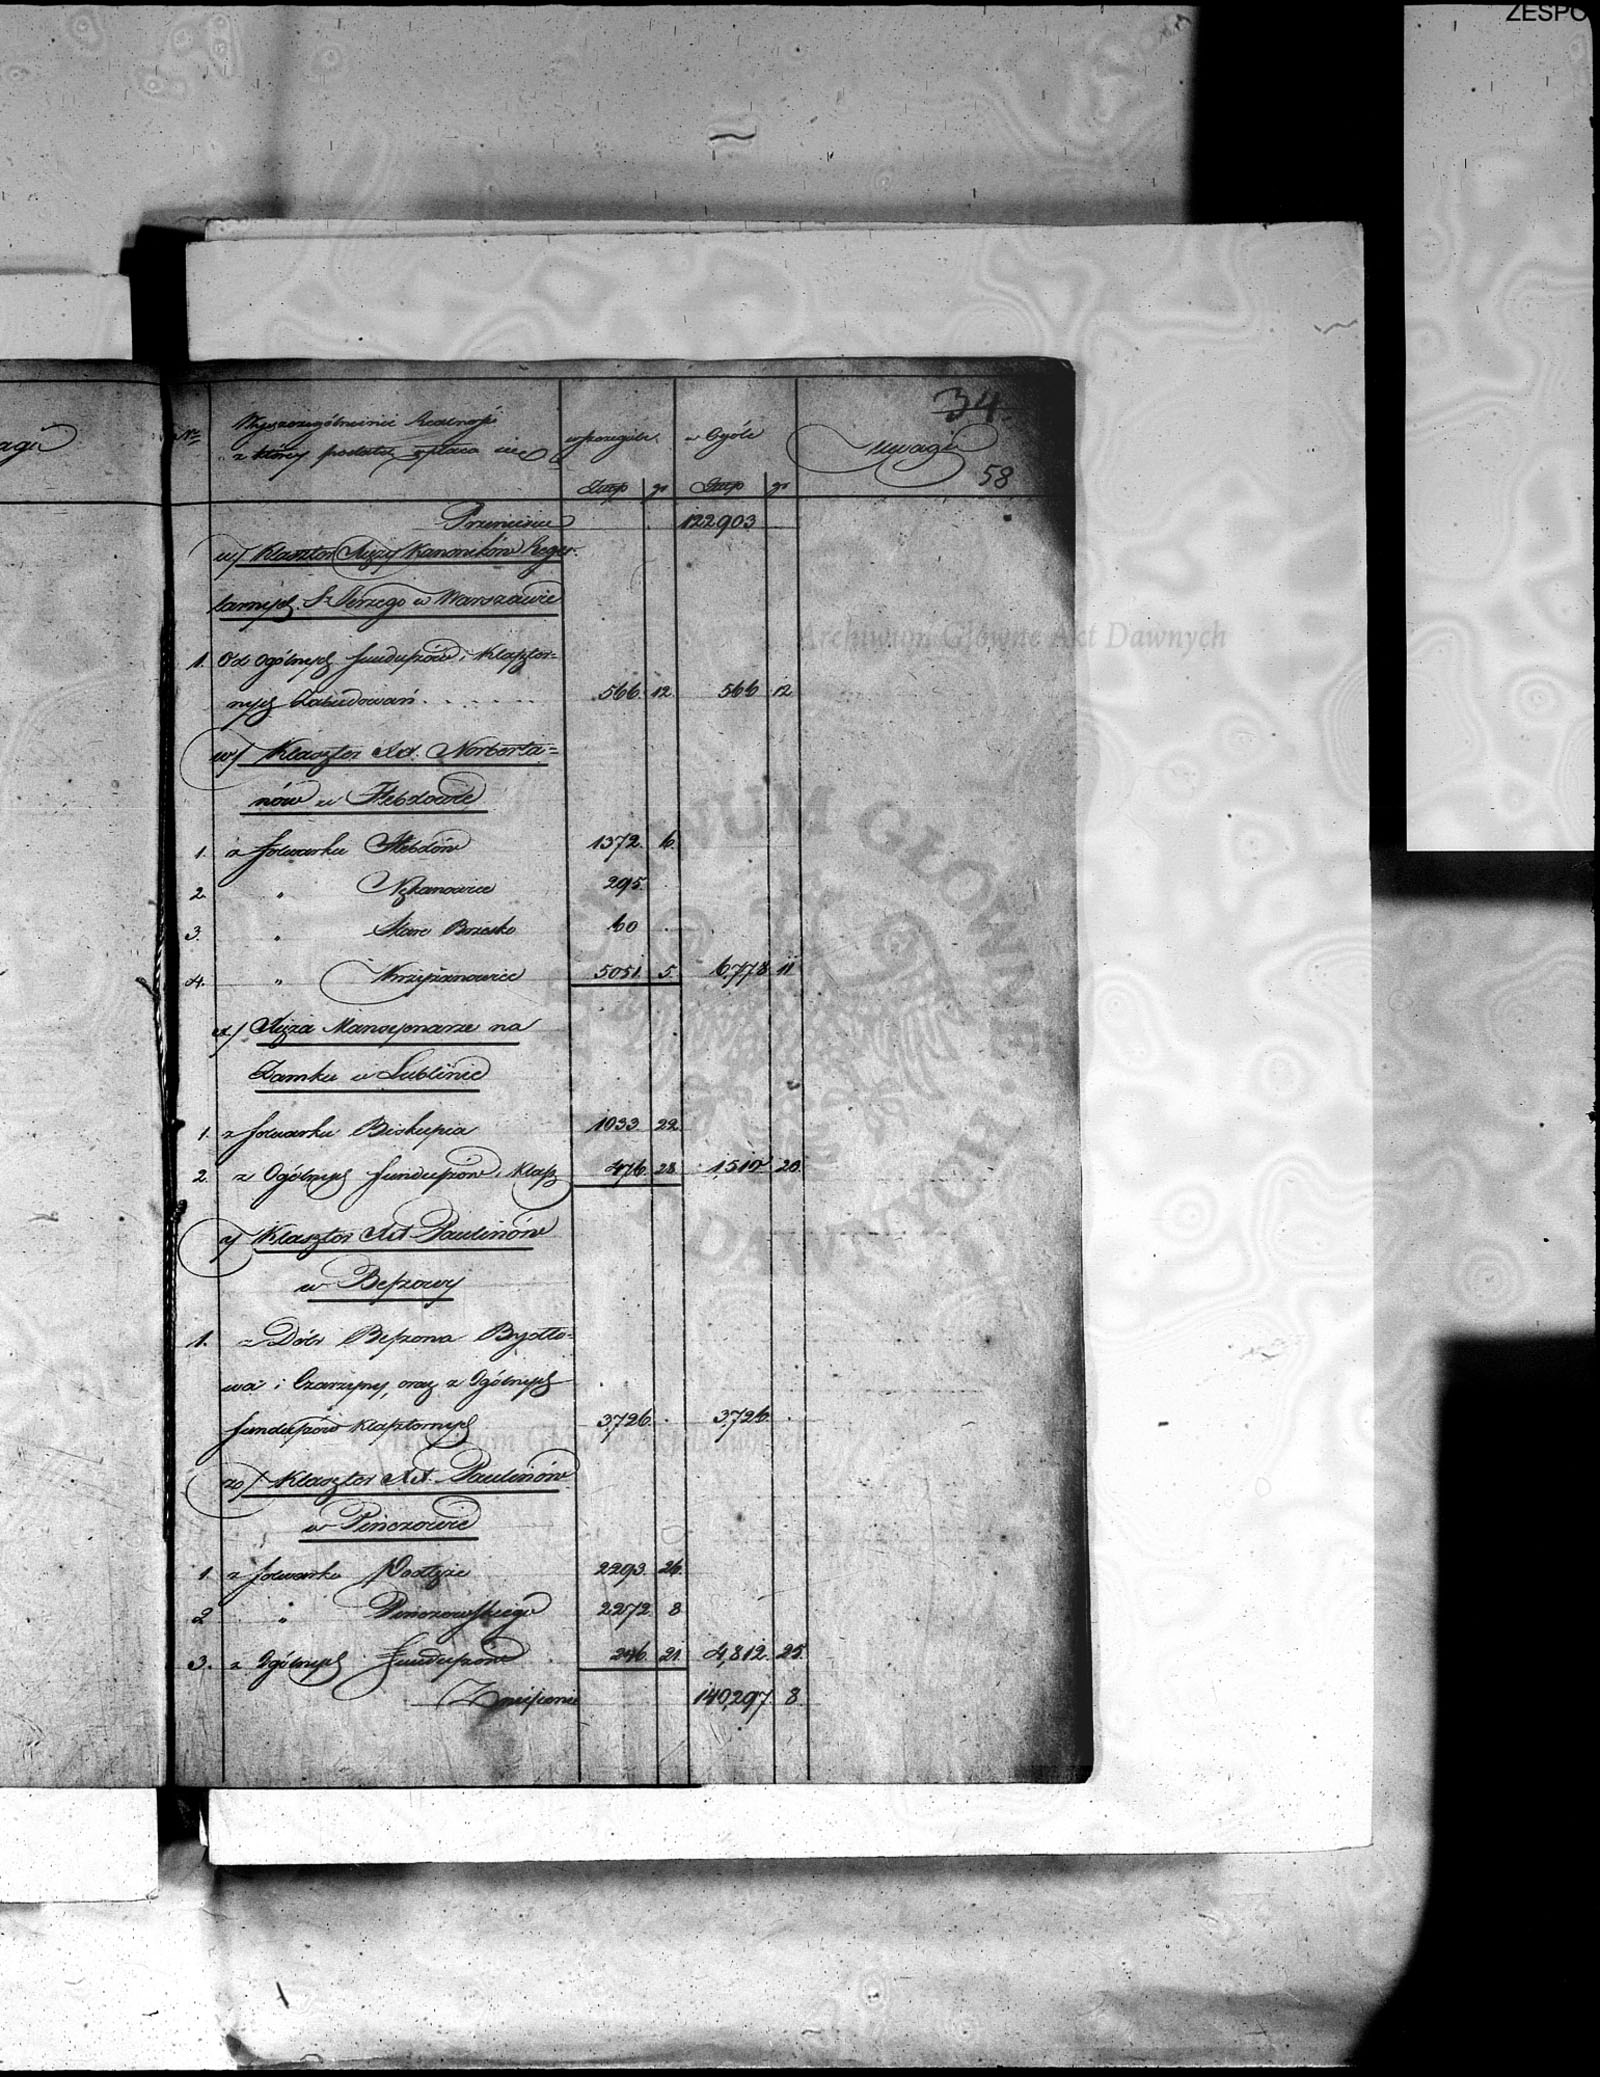 ZESPO
34.
58
Nr
Wyszczególnienie Realności
w szczególe
w Ogóle
Uwagi
z której podatek opłaca się
Złtp gr Złtp gr
Przeniesienie 122903
u/ Klasztor Xięży Kanoników Regu-
larnych S. Jerzego w Warszawie
1. Od Ogólnych funduszów i Klasztor-
nych Zabudowań . . . . . . 566. 12. 566 12
w/ Klasztor XX. Norberta=
nów w Hebdowie
1. z folwarku Hebdów 1372. 6.
2. " Nękanowice 295.
3. " Stare Brzesko 60
4. " Wrzępianowice 5051. 5. 6,778 11
x/ Xięża Mansyonarze na
Zamku w Lublinie
1. z folwarku Biskupia 1033. 22
2. z Ogólnych funduszów Klasz. 476. 28 1,510 20.
y/ Klasztor XX Paulinów
w Beszowy
1. z Dóbr Beszowa Bydło-
wa i Czarzyny, oraz z Ogólnych
funduszów Klasztornych 3,726. 3,726.
z/ Klasztor XX. Paulinów
w Pińczowie
1. z folwarku 2293. 26.
2 " Pińczowskiego 2272. 8
3. z Ogólnych Funduszów 246. 21. 4,812. 25.
140,297. 8.
Archiwum Główne Akt Dawnych
ARCHIWUM GŁÓWNE AKT DAWNYCH
Archiwum Główne Akt Dawnych